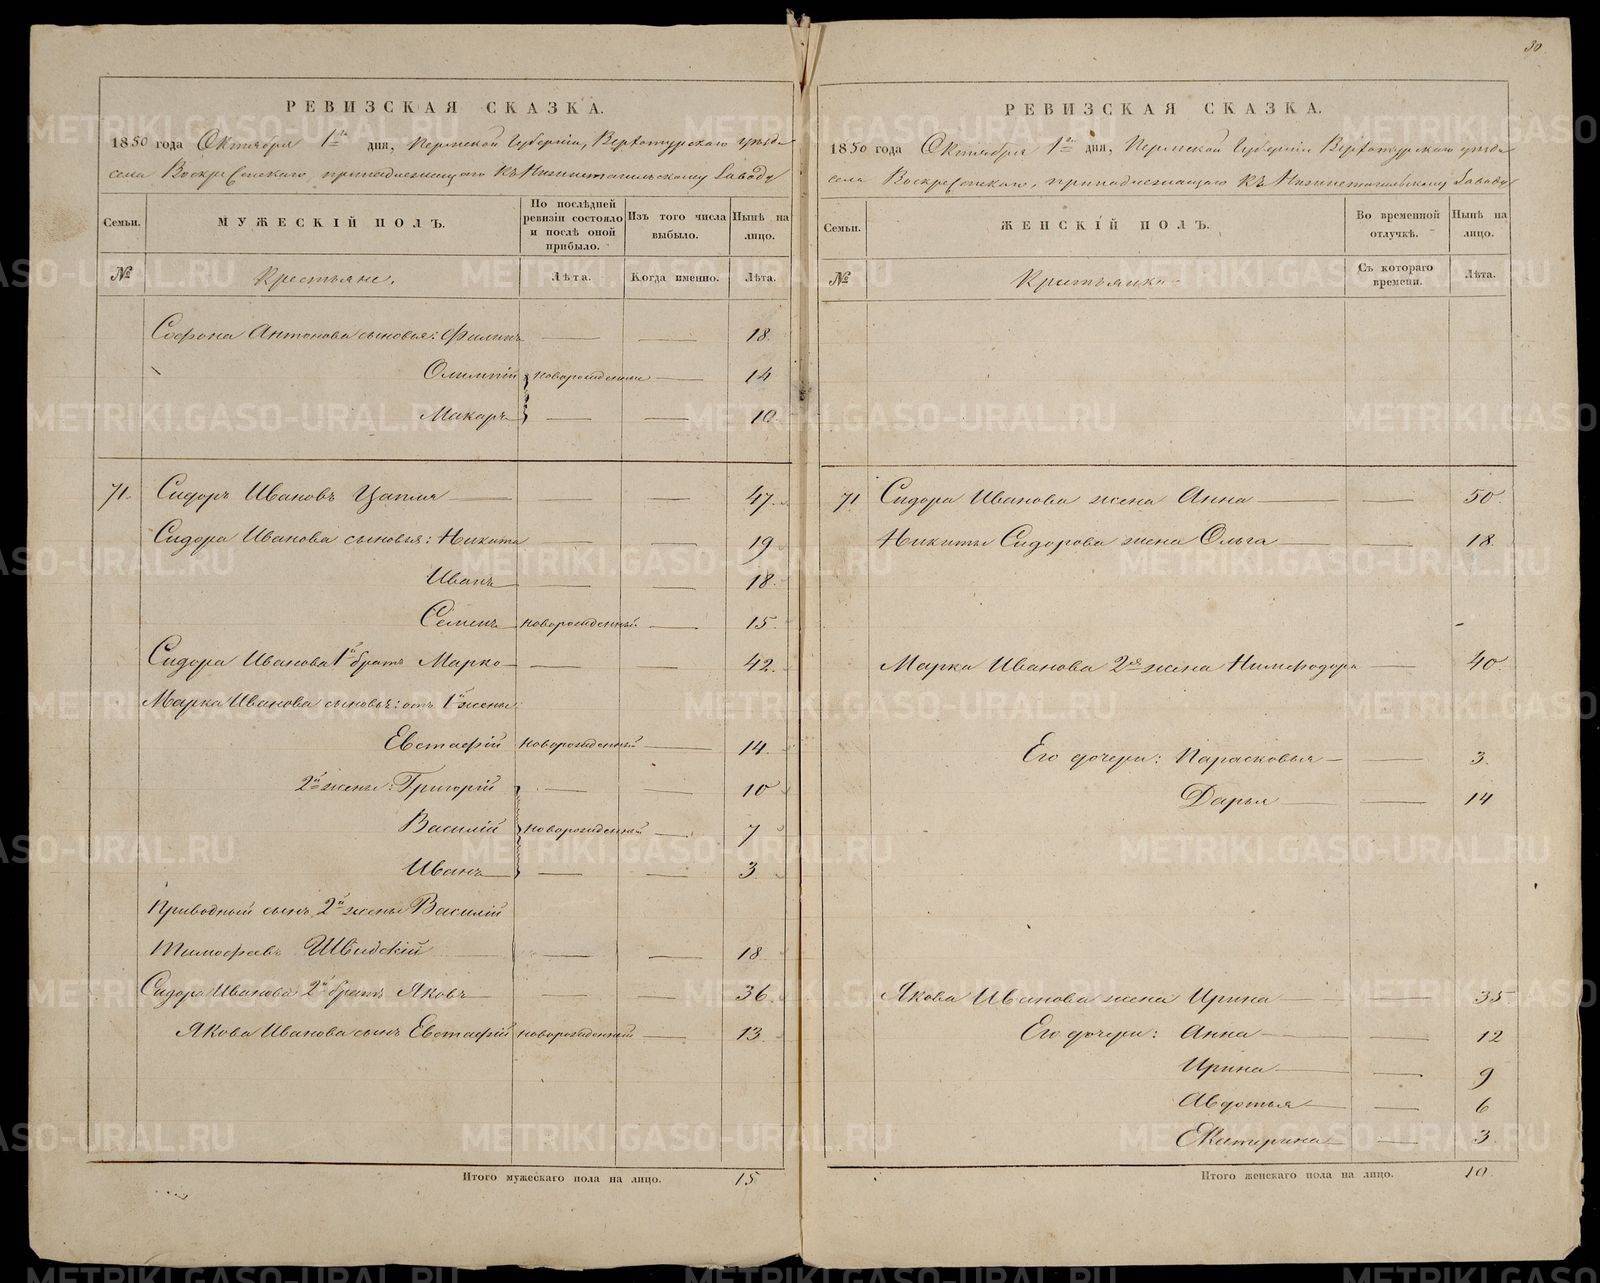 30
РЕВИЗСКАЯ СКАЗКА.
1850 года Октября 1го дня, Пермской Губерніи, Верхотурскаго уѣзда
села Воскресенскаго, принадлежащаго къ Нижнетагильскому Заводу
Семьи. МУЖЕСКІЙ ПОЛЪ. По послѣдней ревизіи состояло и послѣ оной прибыло. Изъ того числа выбыло. Нынѣ на лицо.
№ Крестьяне. Лѣта. Когда именно. Лѣта.
Софона Антонова сыновья: Филипъ — — 18.
Олимпій новорожденные — 14
Макаръ — — 10.
71. Сидоръ Ивановъ Цапля — — — 47.
Сидора Иванова сыновья: Никита — — 19
Иванъ — — 18.
Семенъ новорожденный — 15.
Сидора Иванова 1й братъ Марко — — — 42.
Марка Иванова сыновья: отъ 1й жены:
Евстафій новорожденный — 14.
2й жены: Григорій — — 10
Василій новорожденный — 7
Иванъ — — 3.
Приводный сынъ 2й жены Василій
Тимофѣевъ Швидскій — — 18
Сидора Иванова 2й братъ Яковъ — — — 36.
Якова Иванова сынъ Евстафій новорожденный — 13.
Итого мужескаго пола на лицо. 15
РЕВИЗСКАЯ СКАЗКА.
1850 года Октября 1го дня, Пермской Губерніи Верхотурскаго уѣзда
села Воскресенскаго, принадлежащаго къ Нижнетагильскому Заводу
Семьи. ЖЕНСКІЙ ПОЛЪ. Во временной отлучкѣ. Нынѣ на лицо.
№ Крестьянки. Съ котораго времени. Лѣта.
71 Сидора Иванова жена Анна — — 50.
Никиты Сидорова жена Ольга — — 18.
Марка Иванова 2я жена Нимфодора — 40.
Его дочери: Парасковья — — 3.
Дарья — — 14
Якова Иванова жена Ирина — — 35.
Его дочери: Анна — — 12
Ирина — — 9
Авдотья — — 6
Екатерина — — 3.
Итого женскаго пола на лицо. 10.
METRIKI.GASO-URAL.RU